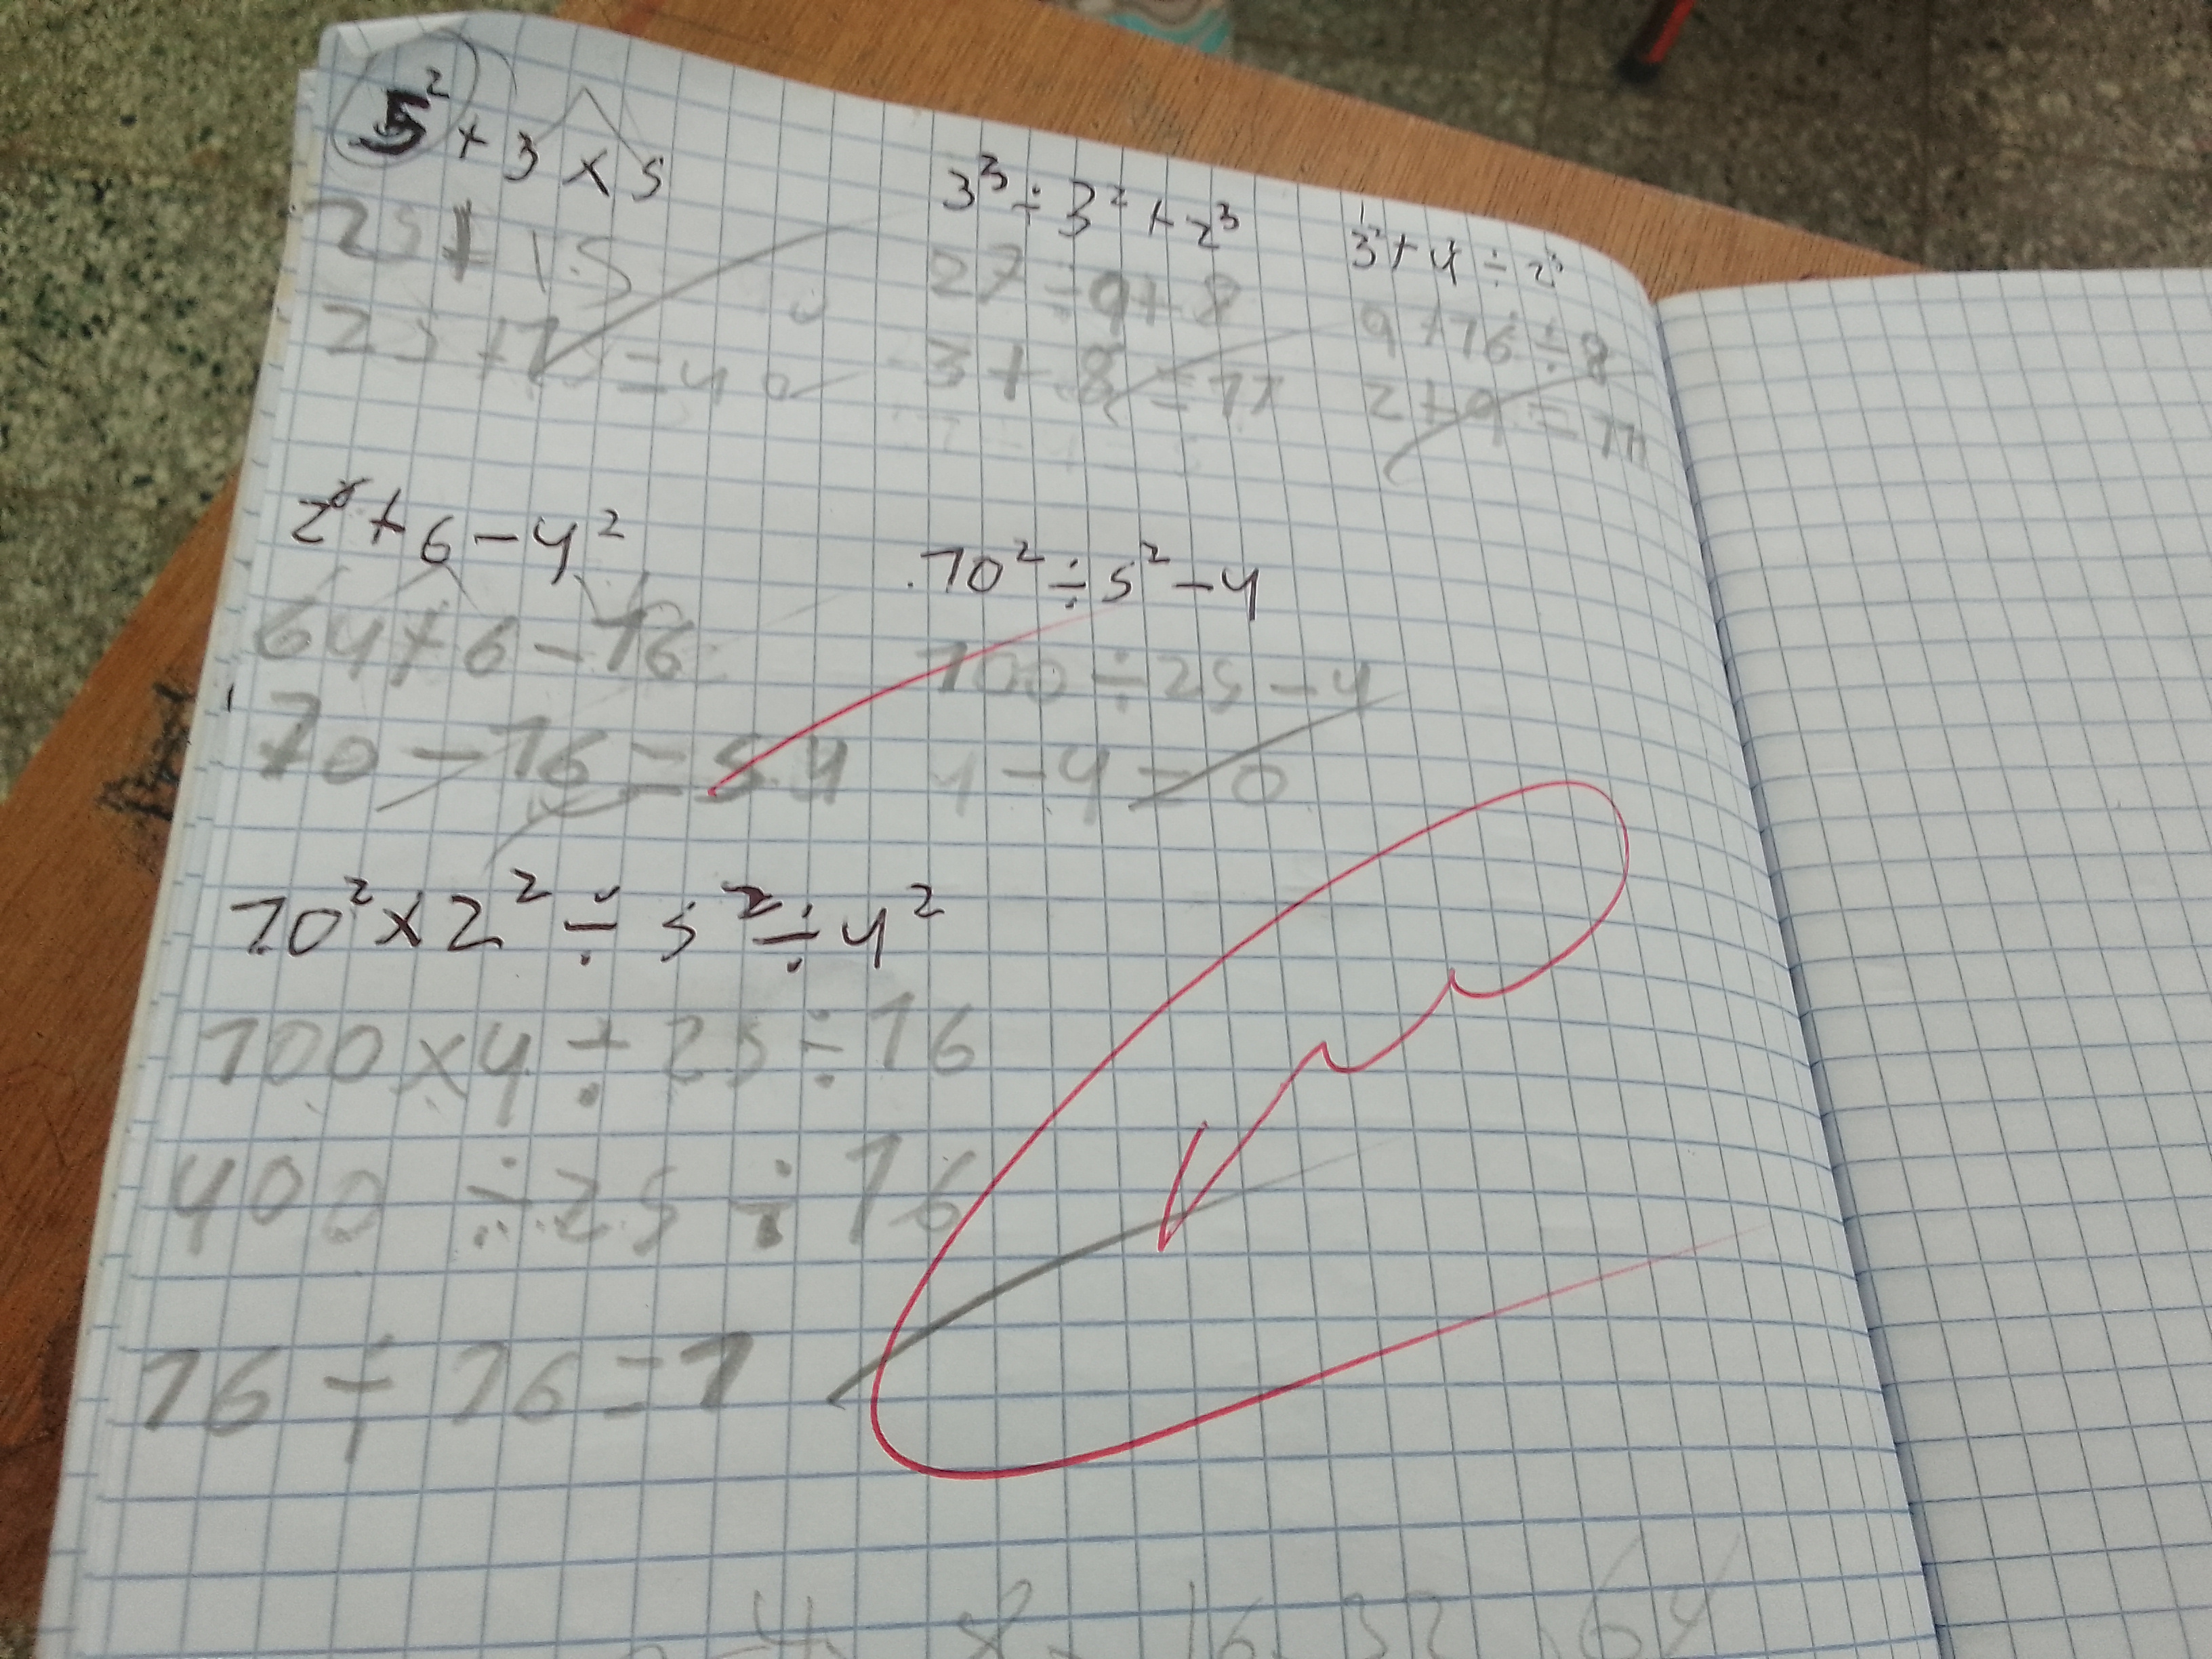 5² + 3 × 5
25 + 15
25 + 15 = 40
3³ ÷ 3² + 2³
27 ÷ 9 + 8
3 + 8 = 11
3² + 4² ÷ 2³
9 + 16 ÷ 8
2 + 9 = 11
2⁶ + 6 - 4²
64 + 6 - 16
70 - 16 = 54
10² ÷ 5² - 4
100 ÷ 25 - 4
4 - 4 = 0
10² × 2² ÷ 5² ÷ 4²
100 × 4 ÷ 25 ÷ 16
400 ÷ 25 ÷ 16
16 ÷ 16 = 1
4 8 16 32 64